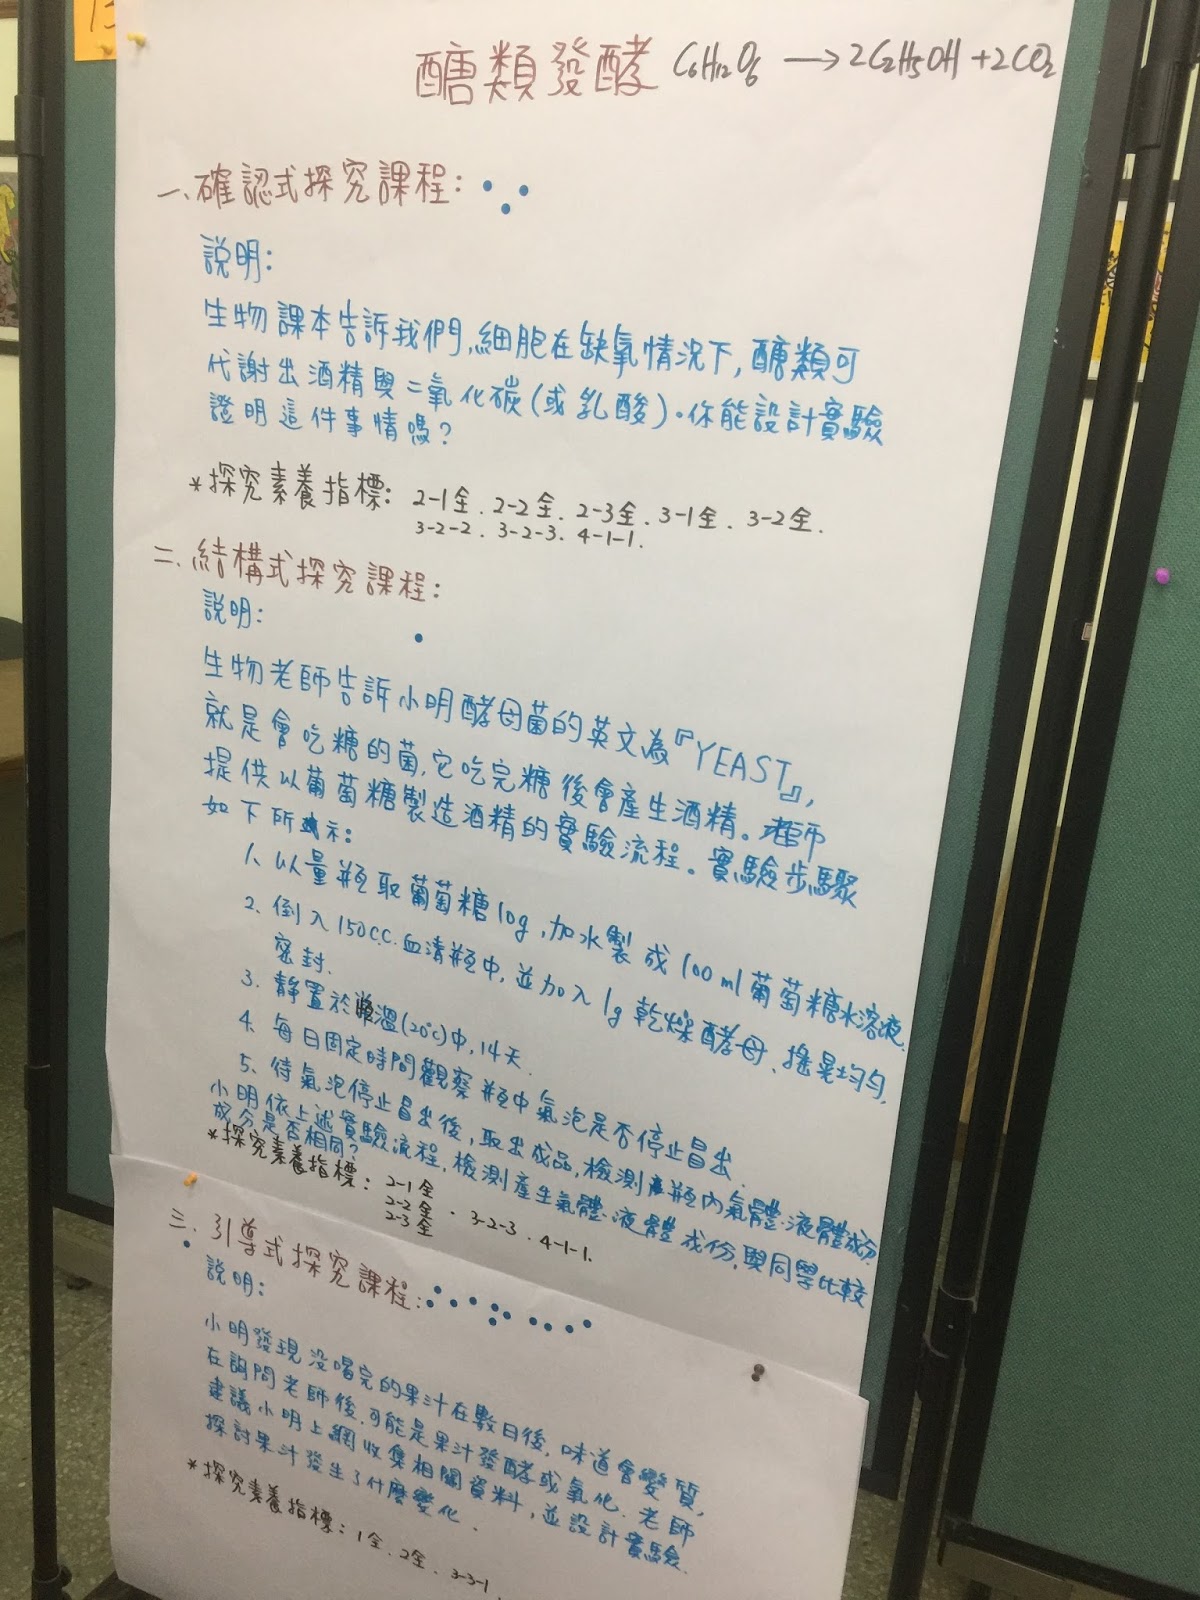 醣類發酵 C6H12O6 → 2C2H5OH + 2CO2
一、確認式探究課程:
說明:
生物課本告訴我們,細胞在缺氧情況下,醣類可
代謝出酒精與二氧化碳(或乳酸)。你能設計實驗
證明這件事情嗎?
*探究素養指標: 2-1全、2-2全、2-3全、3-1全、3-2全.
3-2-2、3-2-3、4-1-1.
二、結構式探究課程:
說明:
生物老師告訴小明酵母菌的英文為『YEAST』,
就是會吃糖的菌,它吃完糖後會產生酒精。老師
提供以葡萄糖製造酒精的實驗流程。實驗步驟
如下所示:
1、以量瓶取葡萄糖10g,加水製成100ml葡萄糖水溶液.
2、倒入150c.c.血清瓶中,並加入1g乾燥酵母、搖晃均勻,
密封.
3、靜置於溫(20℃)中,14天.
4、每日固定時間觀察瓶中氣泡是否停止冒出.
5、待氣泡停止冒出後,取出成品,檢測瓶內氣體、液體成分.
小明依上述實驗流程,檢測產生氣體、液體成份,與同學比較
成分是否相同?
*探究素養指標: 2-1全
2-2全、3-2-3、4-1-1.
2-3全
三、引導式探究課程:
說明:
小明發現沒喝完的果汁在數日後,味道會變質,
在詢問老師後,可能是果汁發酵或氧化.老師
建議小明上網收集相關資料,並設計實驗
探討果汁發生了什麼變化.
*探究素養指標: 1全、2全、3-3-1